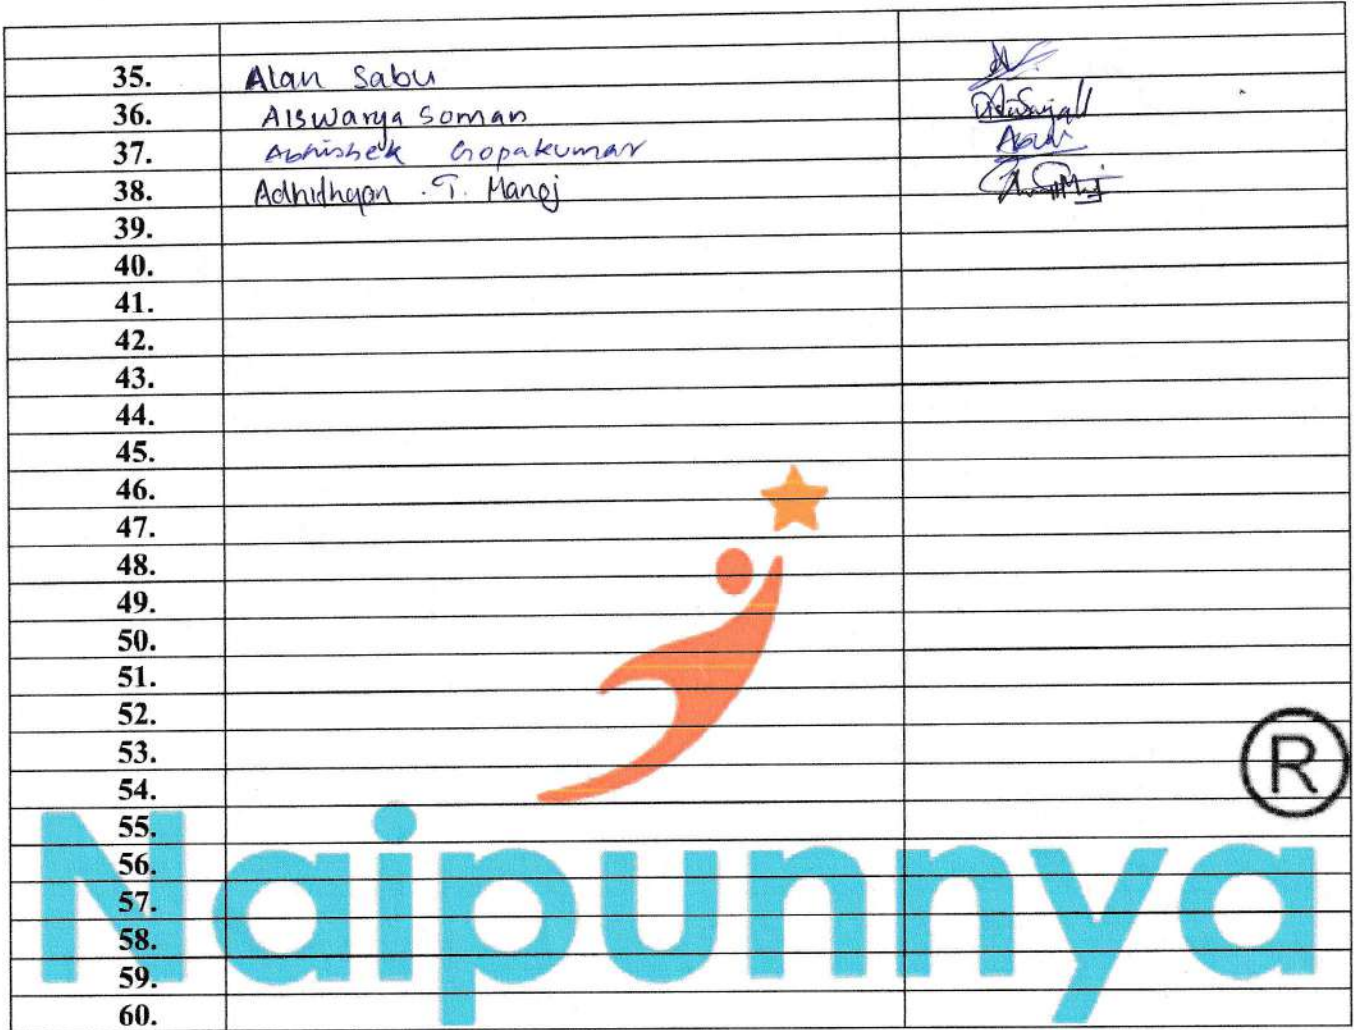 35. Alan Sabu
36. Aiswarya Soman
37. Abhishek Gopakumar
38. Adhidhyan .T. Manoj
39.
40.
41.
42.
43.
44.
45.
46.
47.
48.
49.
50.
51.
52.
53.
54.
55.
56.
57.
58.
59.
60.
Naipunnya ®